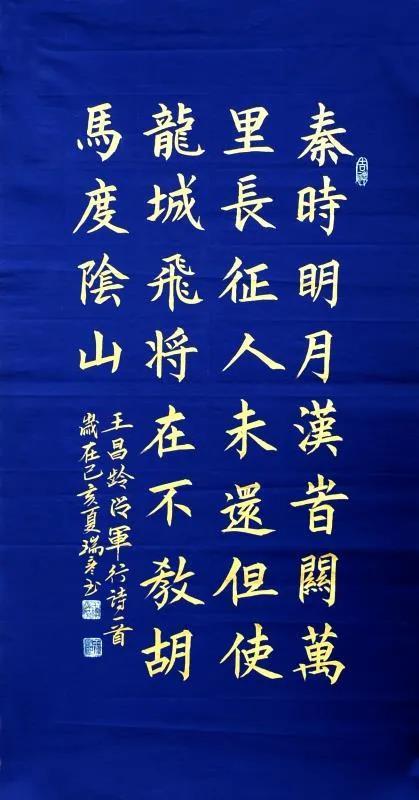 秦時明月漢旹關萬
里長征人未還但使
龍城飛将在不教胡
馬度陰山
王昌龄從軍行詩一首
歲在己亥夏瑞彦书